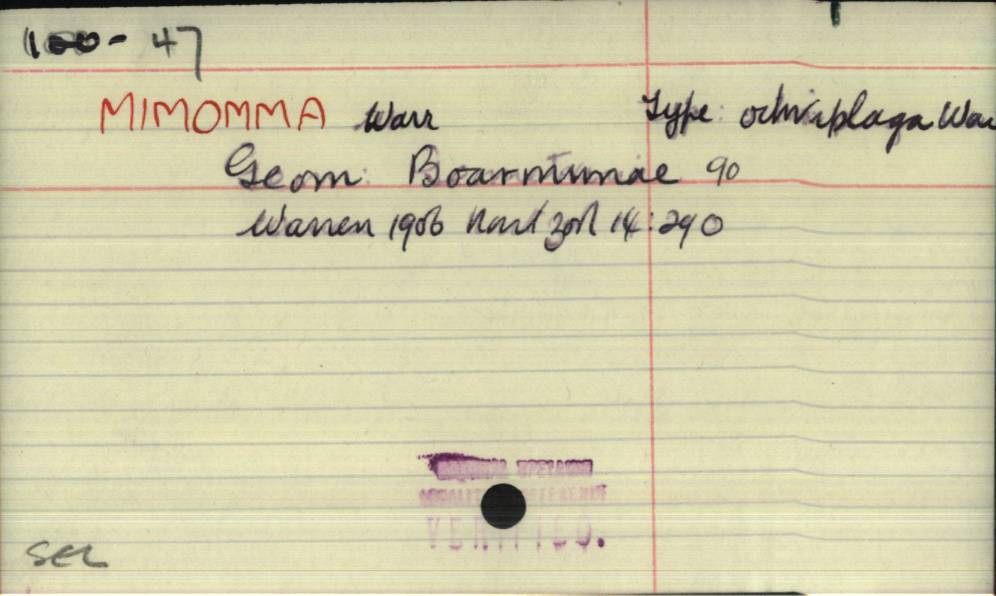 100- 47
MIMOMMA Warr Type: ochriplaga War
Geom: Boarmiinae 90
Warren 1906 Novit zool 14: 290
VERIFIED.
SEL